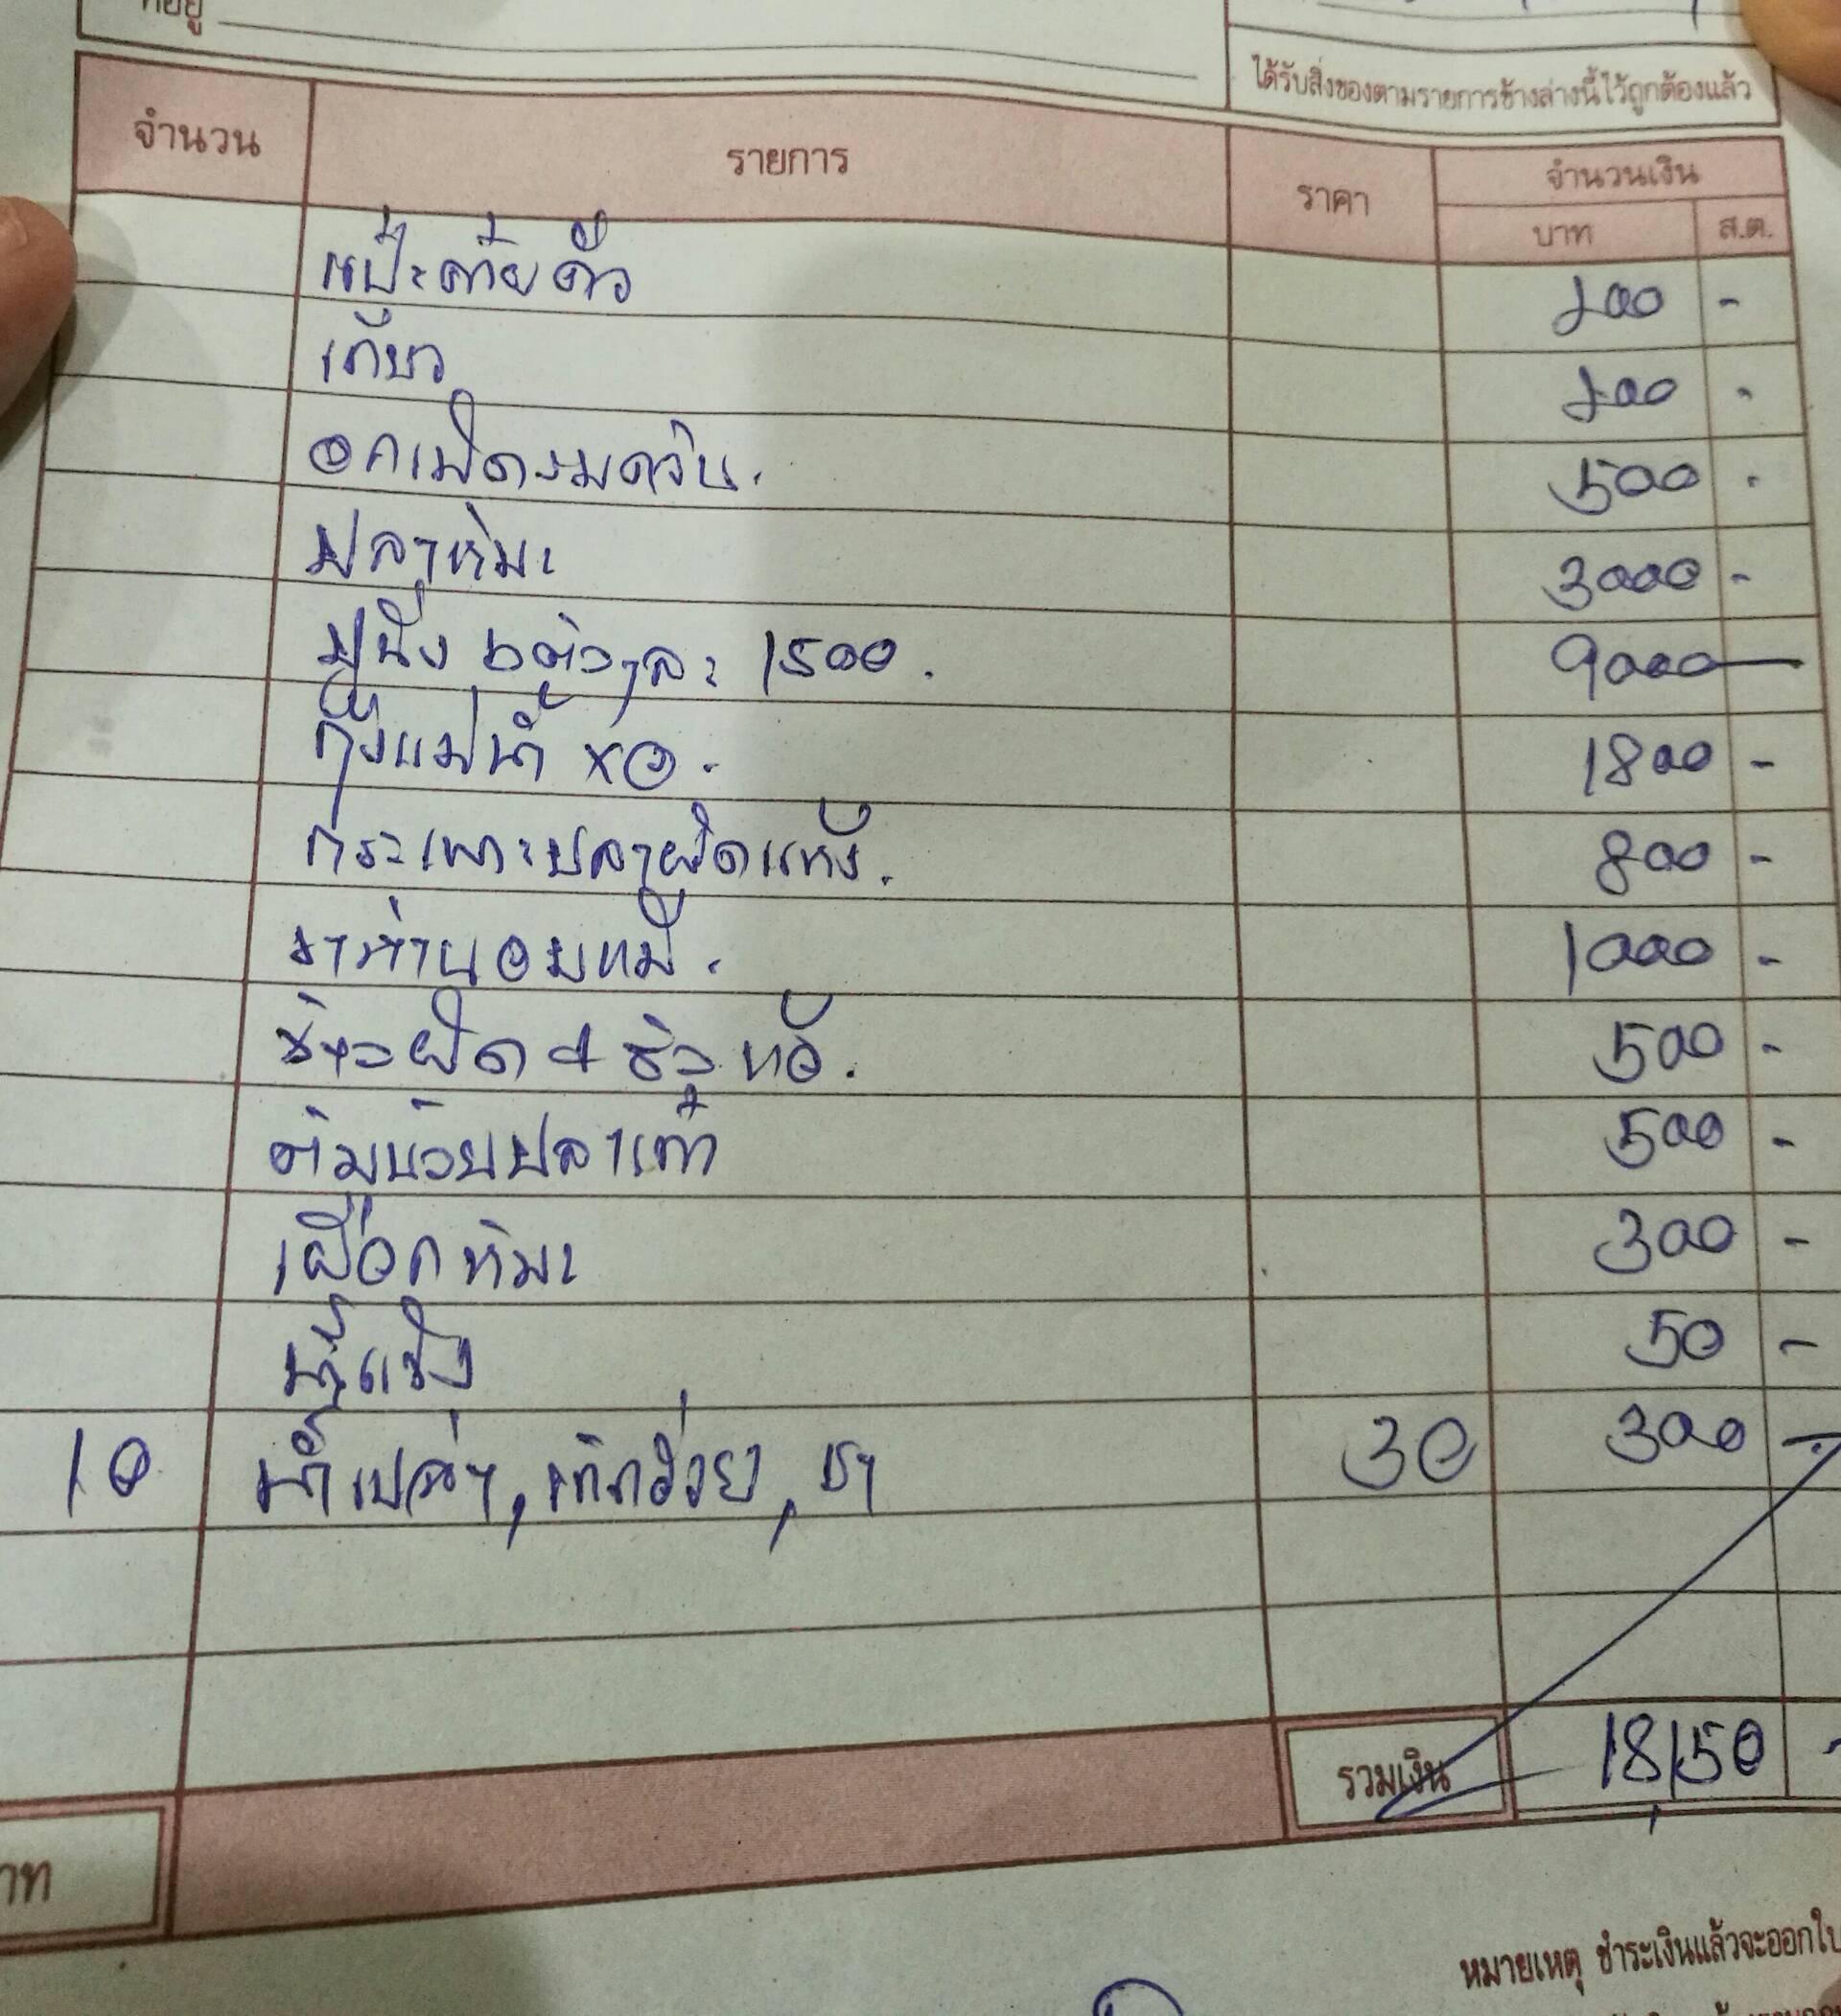 ที่อยู่
ได้รับสิ่งของตามรายการข้างล่างนี้ไว้ถูกต้องแล้ว
จำนวน รายการ ราคา จำนวนเงิน
บาท ส.ต.
200 -
เกี๊ยว 200 -
อกเป็ดรมควัน. 500 -
ปลาหิมะ 3000 -
ปูนึ่ง 6 ตัวๆละ 1500. 9000 -
กุ้งแม่น้ำ XO. 1800 -
กระเพาะปลาผัดแห้ง. 800 -
ขาห่านอบหมี่. 1000 -
ข้าวผัด 500 -
ต้ม ปลาเก๋า 500 -
เผือกหิมะ 300 -
น้ำแข็ง 50 -
10 น้ำเปล่า, เก๊กฮวย, ชา 30 300 -
รวมเงิน 18,150 -
าท
หมายเหตุ ชำระเงินแล้วจะออกใบ